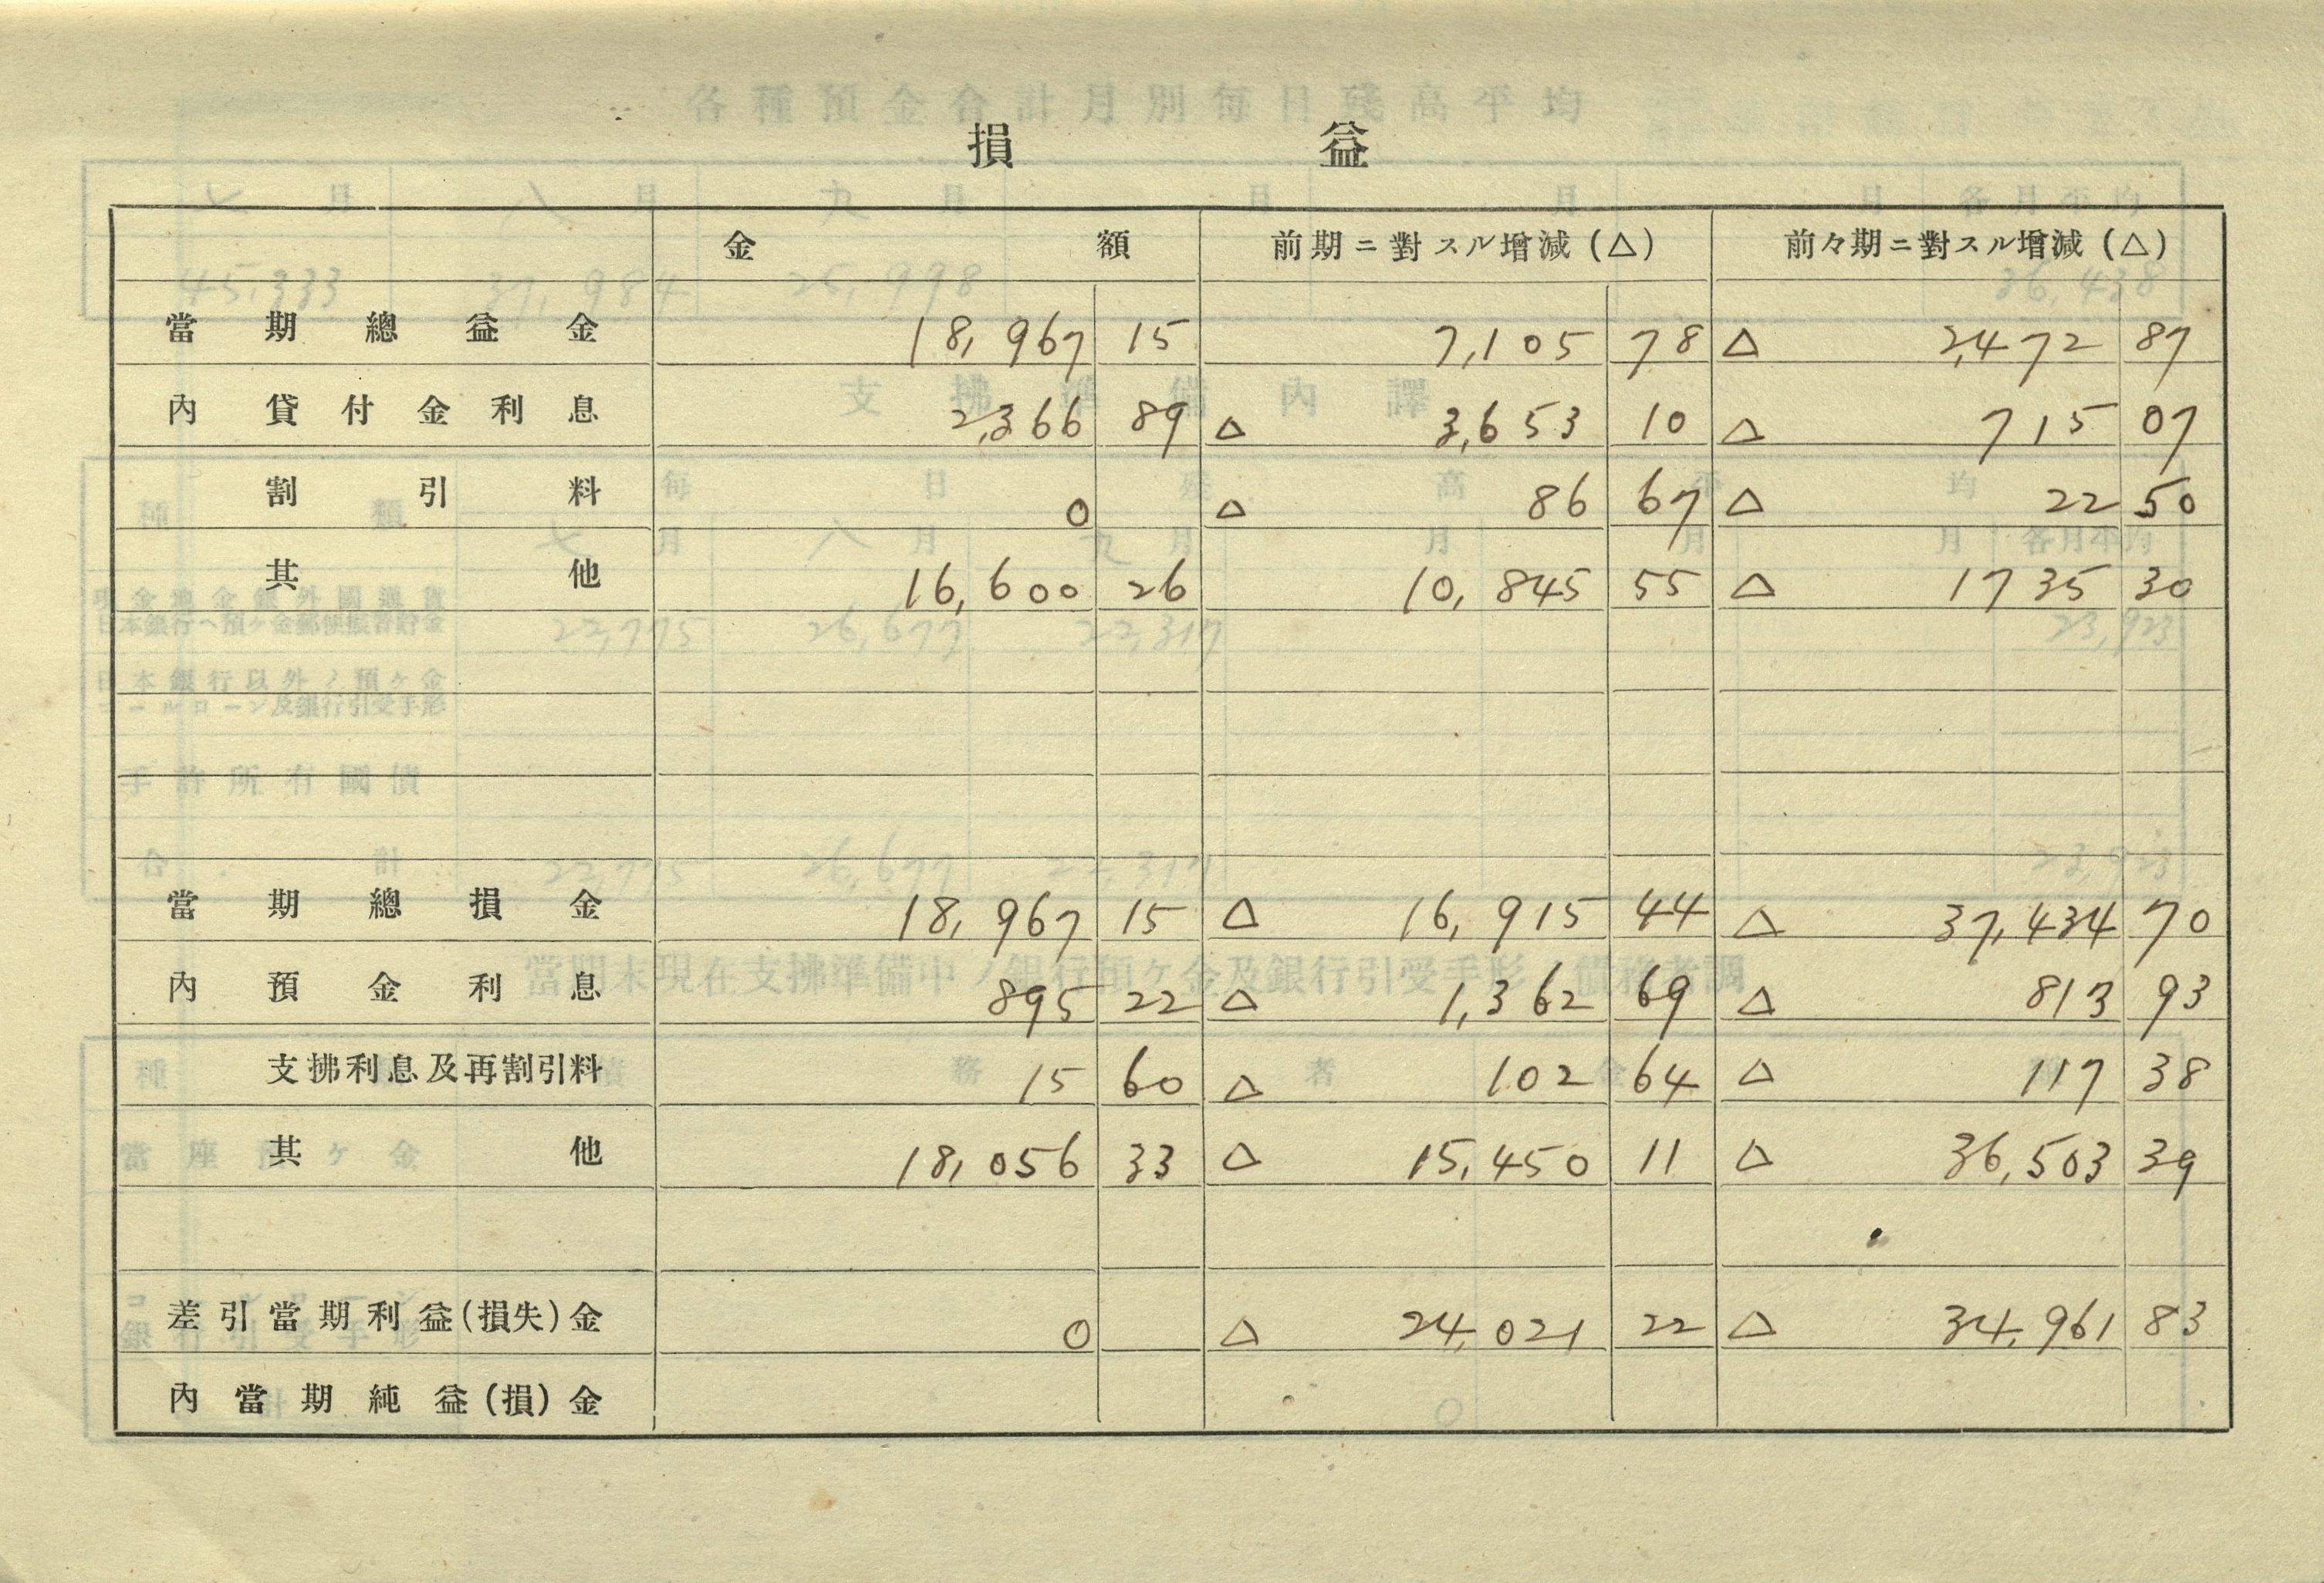 損益
金額 前期ニ對スル增減(△) 前々期ニ對スル增減(△)
當期總益金 18,967 15 7,105 78 △ 2,472 87
內貸付金利息 2,366 89 △ 3,653 10 △ 715 07
割引料 0 △ 86 67 △ 22 50
其他 16,600 26 10,845 55 △ 1735 30
當期總損金 18,967 15 △ 16,915 44 △ 37,434 70
內預金利息 895 22 △ 1,362 69 △ 813 93
支拂利息及再割引料 15 60 △ 102 64 △ 117 38
其他 18,056 33 △ 15,450 11 △ 36,503 39
差引當期利益(損失)金 0 △ 24,021 22 △ 34,961 83
內當期純益(損)金